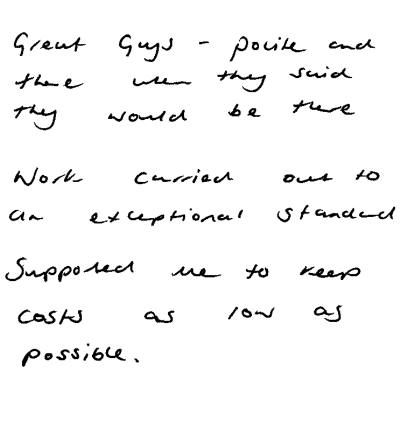 Great Guys - polite and
there when they said
they would be there
Work carried out to
an exceptional standard
Supported me to keep
costs as low as
possible.